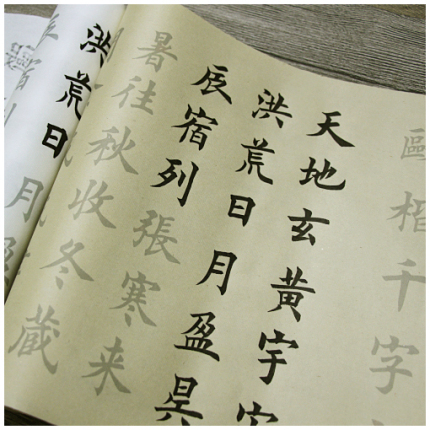 歐楷千字
天地玄黃宇
洪荒日月盈昃
辰宿列張寒来
暑往秋收冬藏
洪荒日月盈
宿列